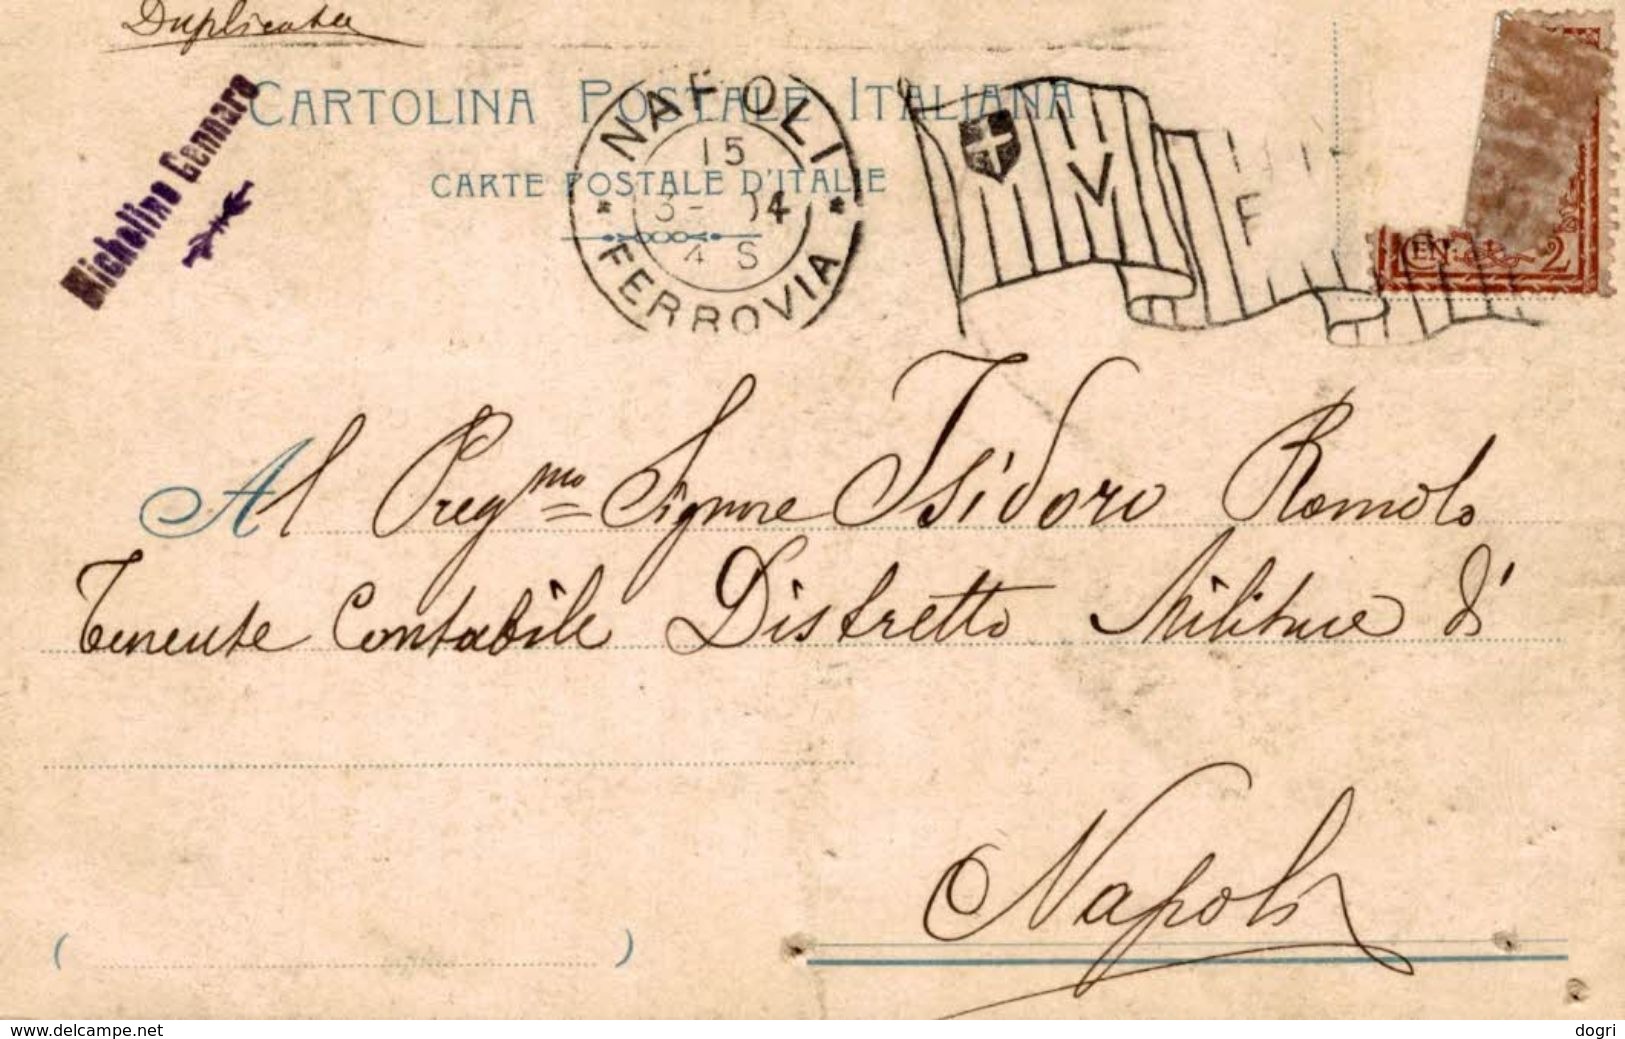 Duplicata
Michelino Gennaro
CARTOLINA POSTALE ITALIANA
CARTE POSTALE D'ITALIE
NAPOLI
15
3- 04
4 S
FERROVIA
V
E
CEN. 2
Al Pregmo Signore Isidoro Romolo
Tenente Contabile Distretto Militare di
Napoli
( )
www.delcampe.net
dogri